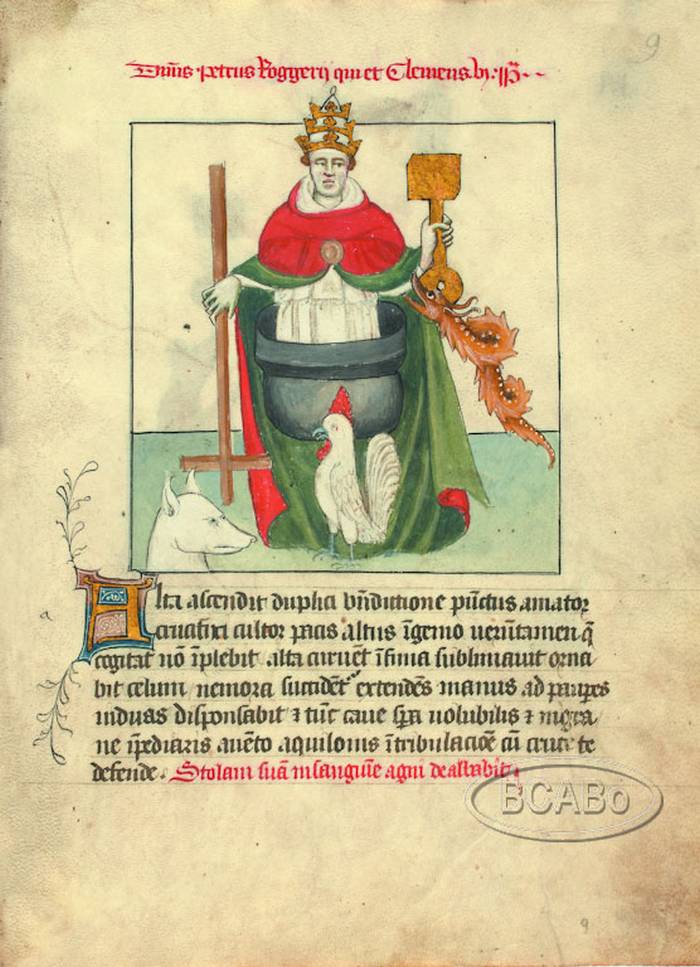 9
Dn̄us petrus Roggerij qui et Clemens
Alta ascendit duplici bn̄dictione pūctus amator
crucifixi cultor pacis altus īgenio uerūtamen q̄
cogitat nō īplebit alta curuet īfima sublimauit orna
bit celum nemora succidet extendēs manus ad paupes
uiduas disponsabit ⁊ tūc caue sp̄a uolubilis ⁊
ne īpediaris auēto aquilonis ītribulaciōe cū cruce te
defende. Stolam suā in sanguīe agni dealbabit
BCABo
9